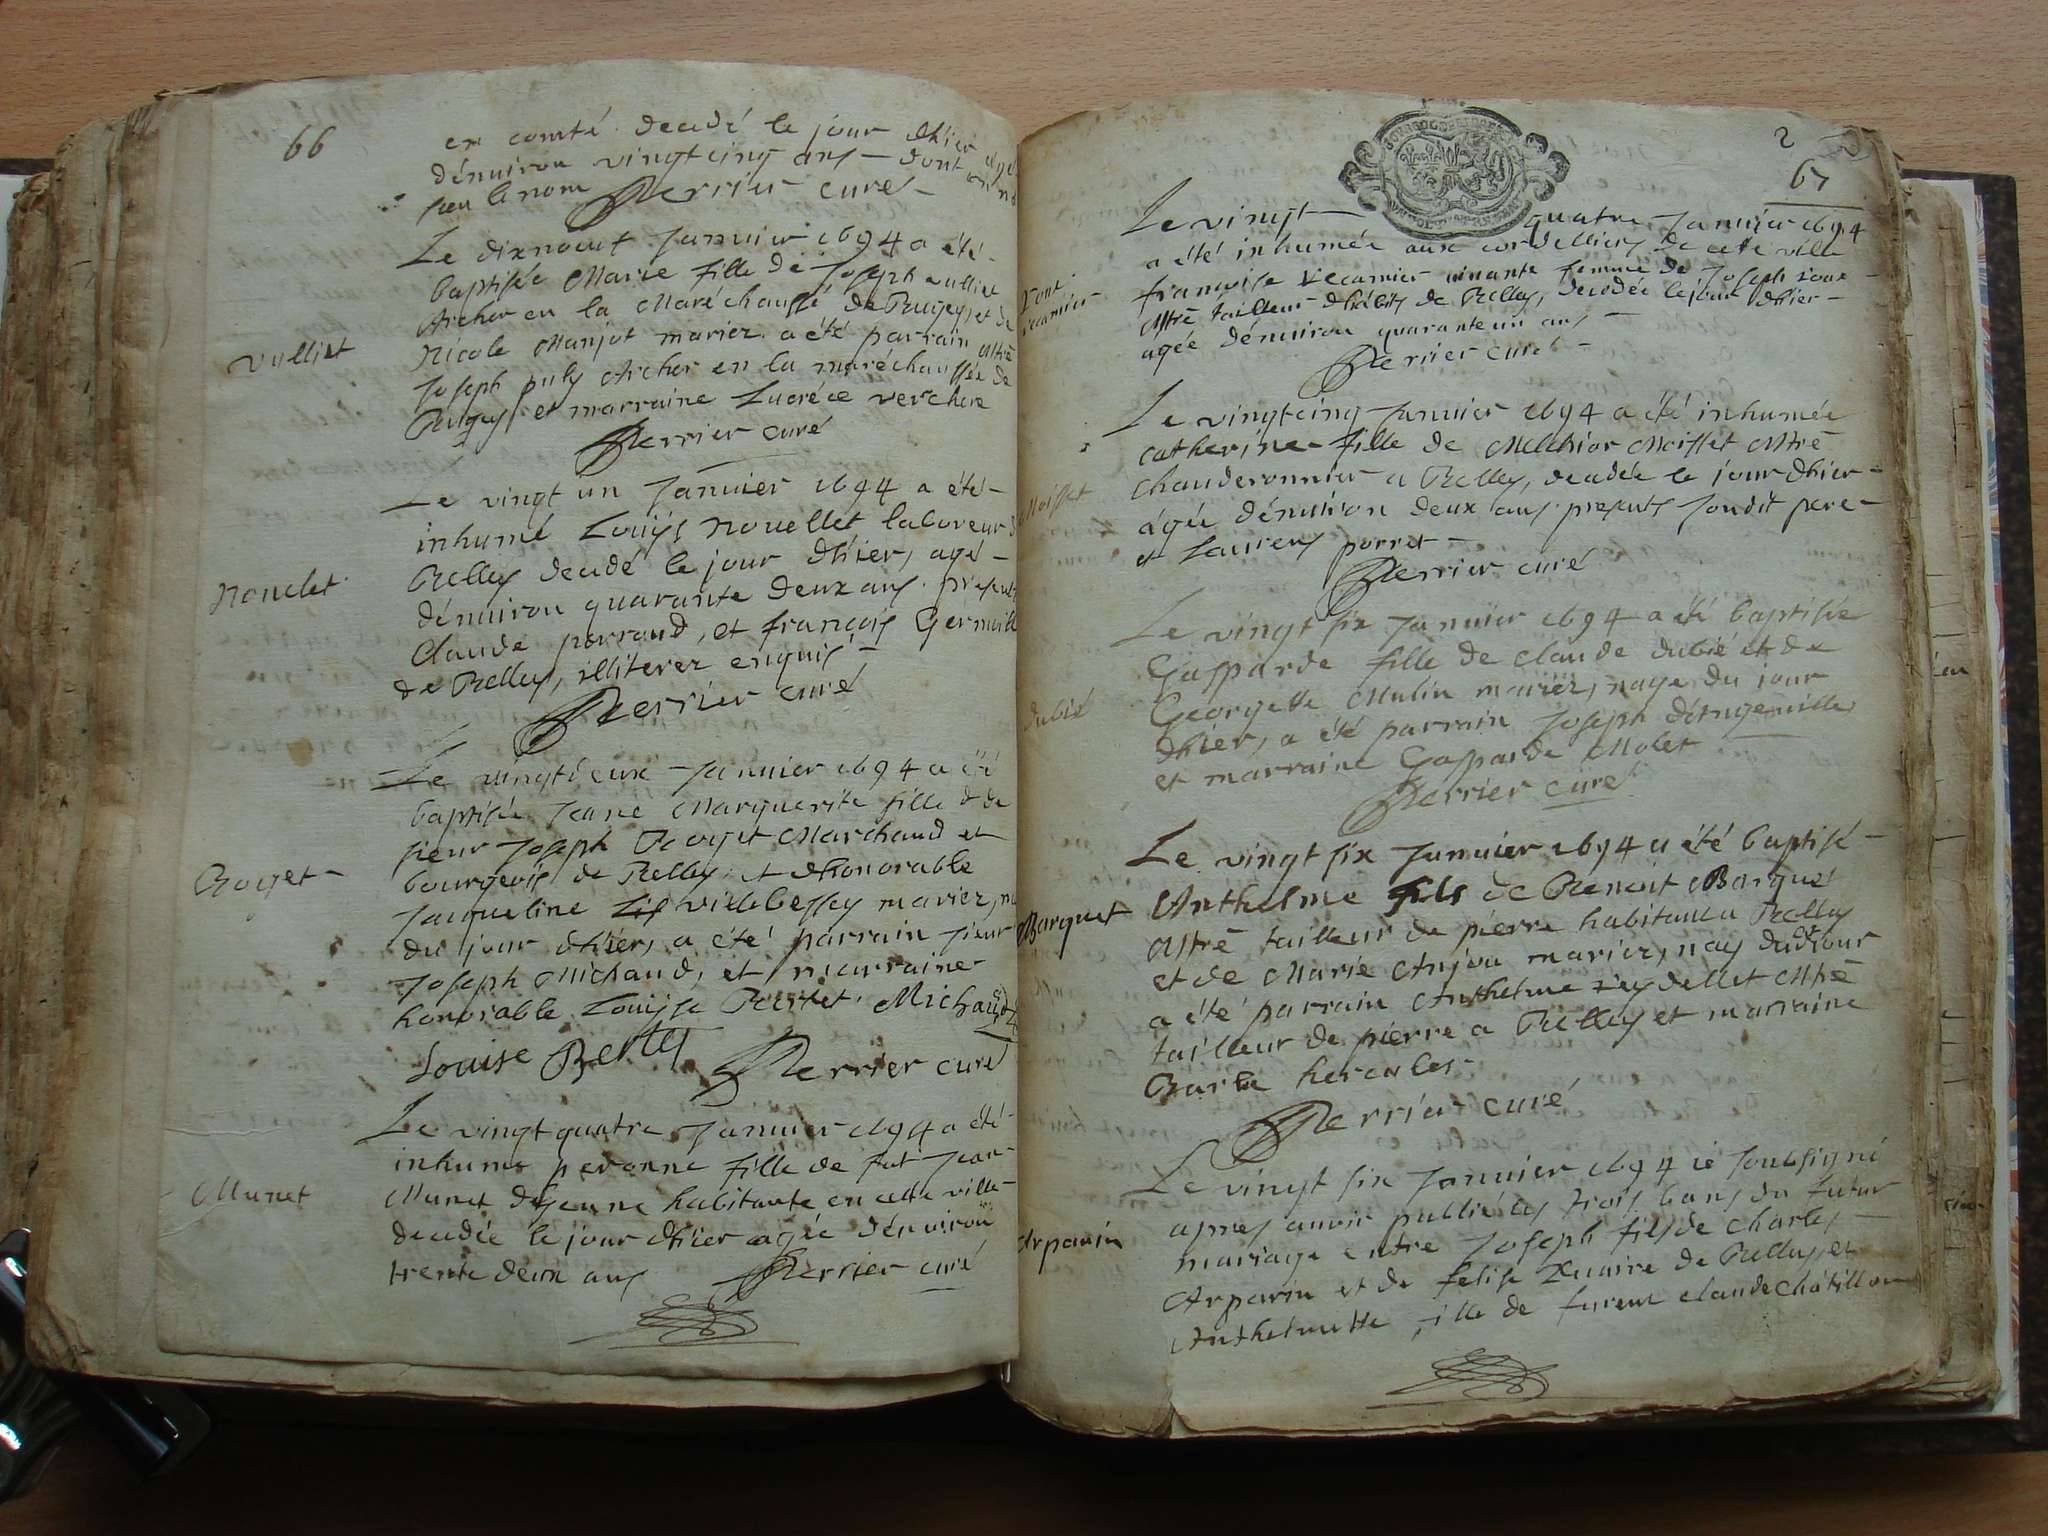 66
en comté decedé le jour dhier agé
dénuiron vingtcinq ans dont on na
sceu le nom Perrier curé
Le dixneuf Januier 1694 a été
baptisée Marie fille de Joseph vulliet
Archer en la Maréchaussé de Bugey, et de
vulliet
Nicole Manjot mariez a été parrain Mtre
Joseph puly Archer en la maréchaussée de
Bugey, et marraine Lucréce verchere
Perrier curé
Le vingt un Januier 1694 a été
inhumé Louijs nouellet laboureur
Nouelet
Belley decedé le jour dhier, agé
dénuiron quarante deux ans. presents
Claude perraud, et françois Germain
de Belley, illiterez enquis
Perrier curé
Le vingtdeux Januier 1694 a été
baptisée Jeane Marguerite fille de
sieur Joseph Roget Marchand et
Roget
bourgeois de Belley, et dhonorable
Jacqueline villebessey mariez,
du jour dhier, a été parrain sieur
Joseph Michaud, et marraine
honorable Louijse Bertet. Michaud
Louise Bertet Perrier curé
Le vingtquatre Januier 1694 a été
inhume peronne fille de fut Jean
Munet
Munet dyenne habitante en cette ville
decedée le jour dhier agée dénuiron
trente deux ans Perrier curé
2
67
Le vingt quatre Januier 1694
a été inhumée aux cordelliers de cette ville
roux
recamier
françoise recamier viuante femme de Joseph roux
Mtre tailleur dhabits de Belley, decedée le jour dhier
agée dénuiron quarante un ans
Perrier curé
Le vingtcinq Januier 1694 a été inhumée
catherine fille de Melchior Moisset Mtre
Moisset
chauderonnier a Belley, decedée le jour dhier
agée dénuiron deux ans presents sondit pere
et Laurens perret
Perrier curé
Le vingt six Januier 1694 a été baptisée
Gasparde fille de claude dubié et de
dubié
Georgette Mulin mariez, naye du jour
dhier, a été parrain Joseph
et marraine Gasparde Molet
Perrier curé
Le vingt six Januier 1694 a été baptisé
Anthelme fils de Benoit Barquet
Barquet
Mtre tailleur de pierre habitant a Belley
et de Marie Anjou mariez, nay dudt jour
a été parrain Anthelme rey dellet Mtre
tailleur de pierre a Belley et marraine
Barbe hercules
Perrier curé
Le vingt six Januier 1694 ié soubsigné
apres auoir publié les trois bans du futur
Arparin
mariage entre Joseph fils de Charles
Arparin et de felise de Belley, et
Anthelmette fille de furent claude Chatillon